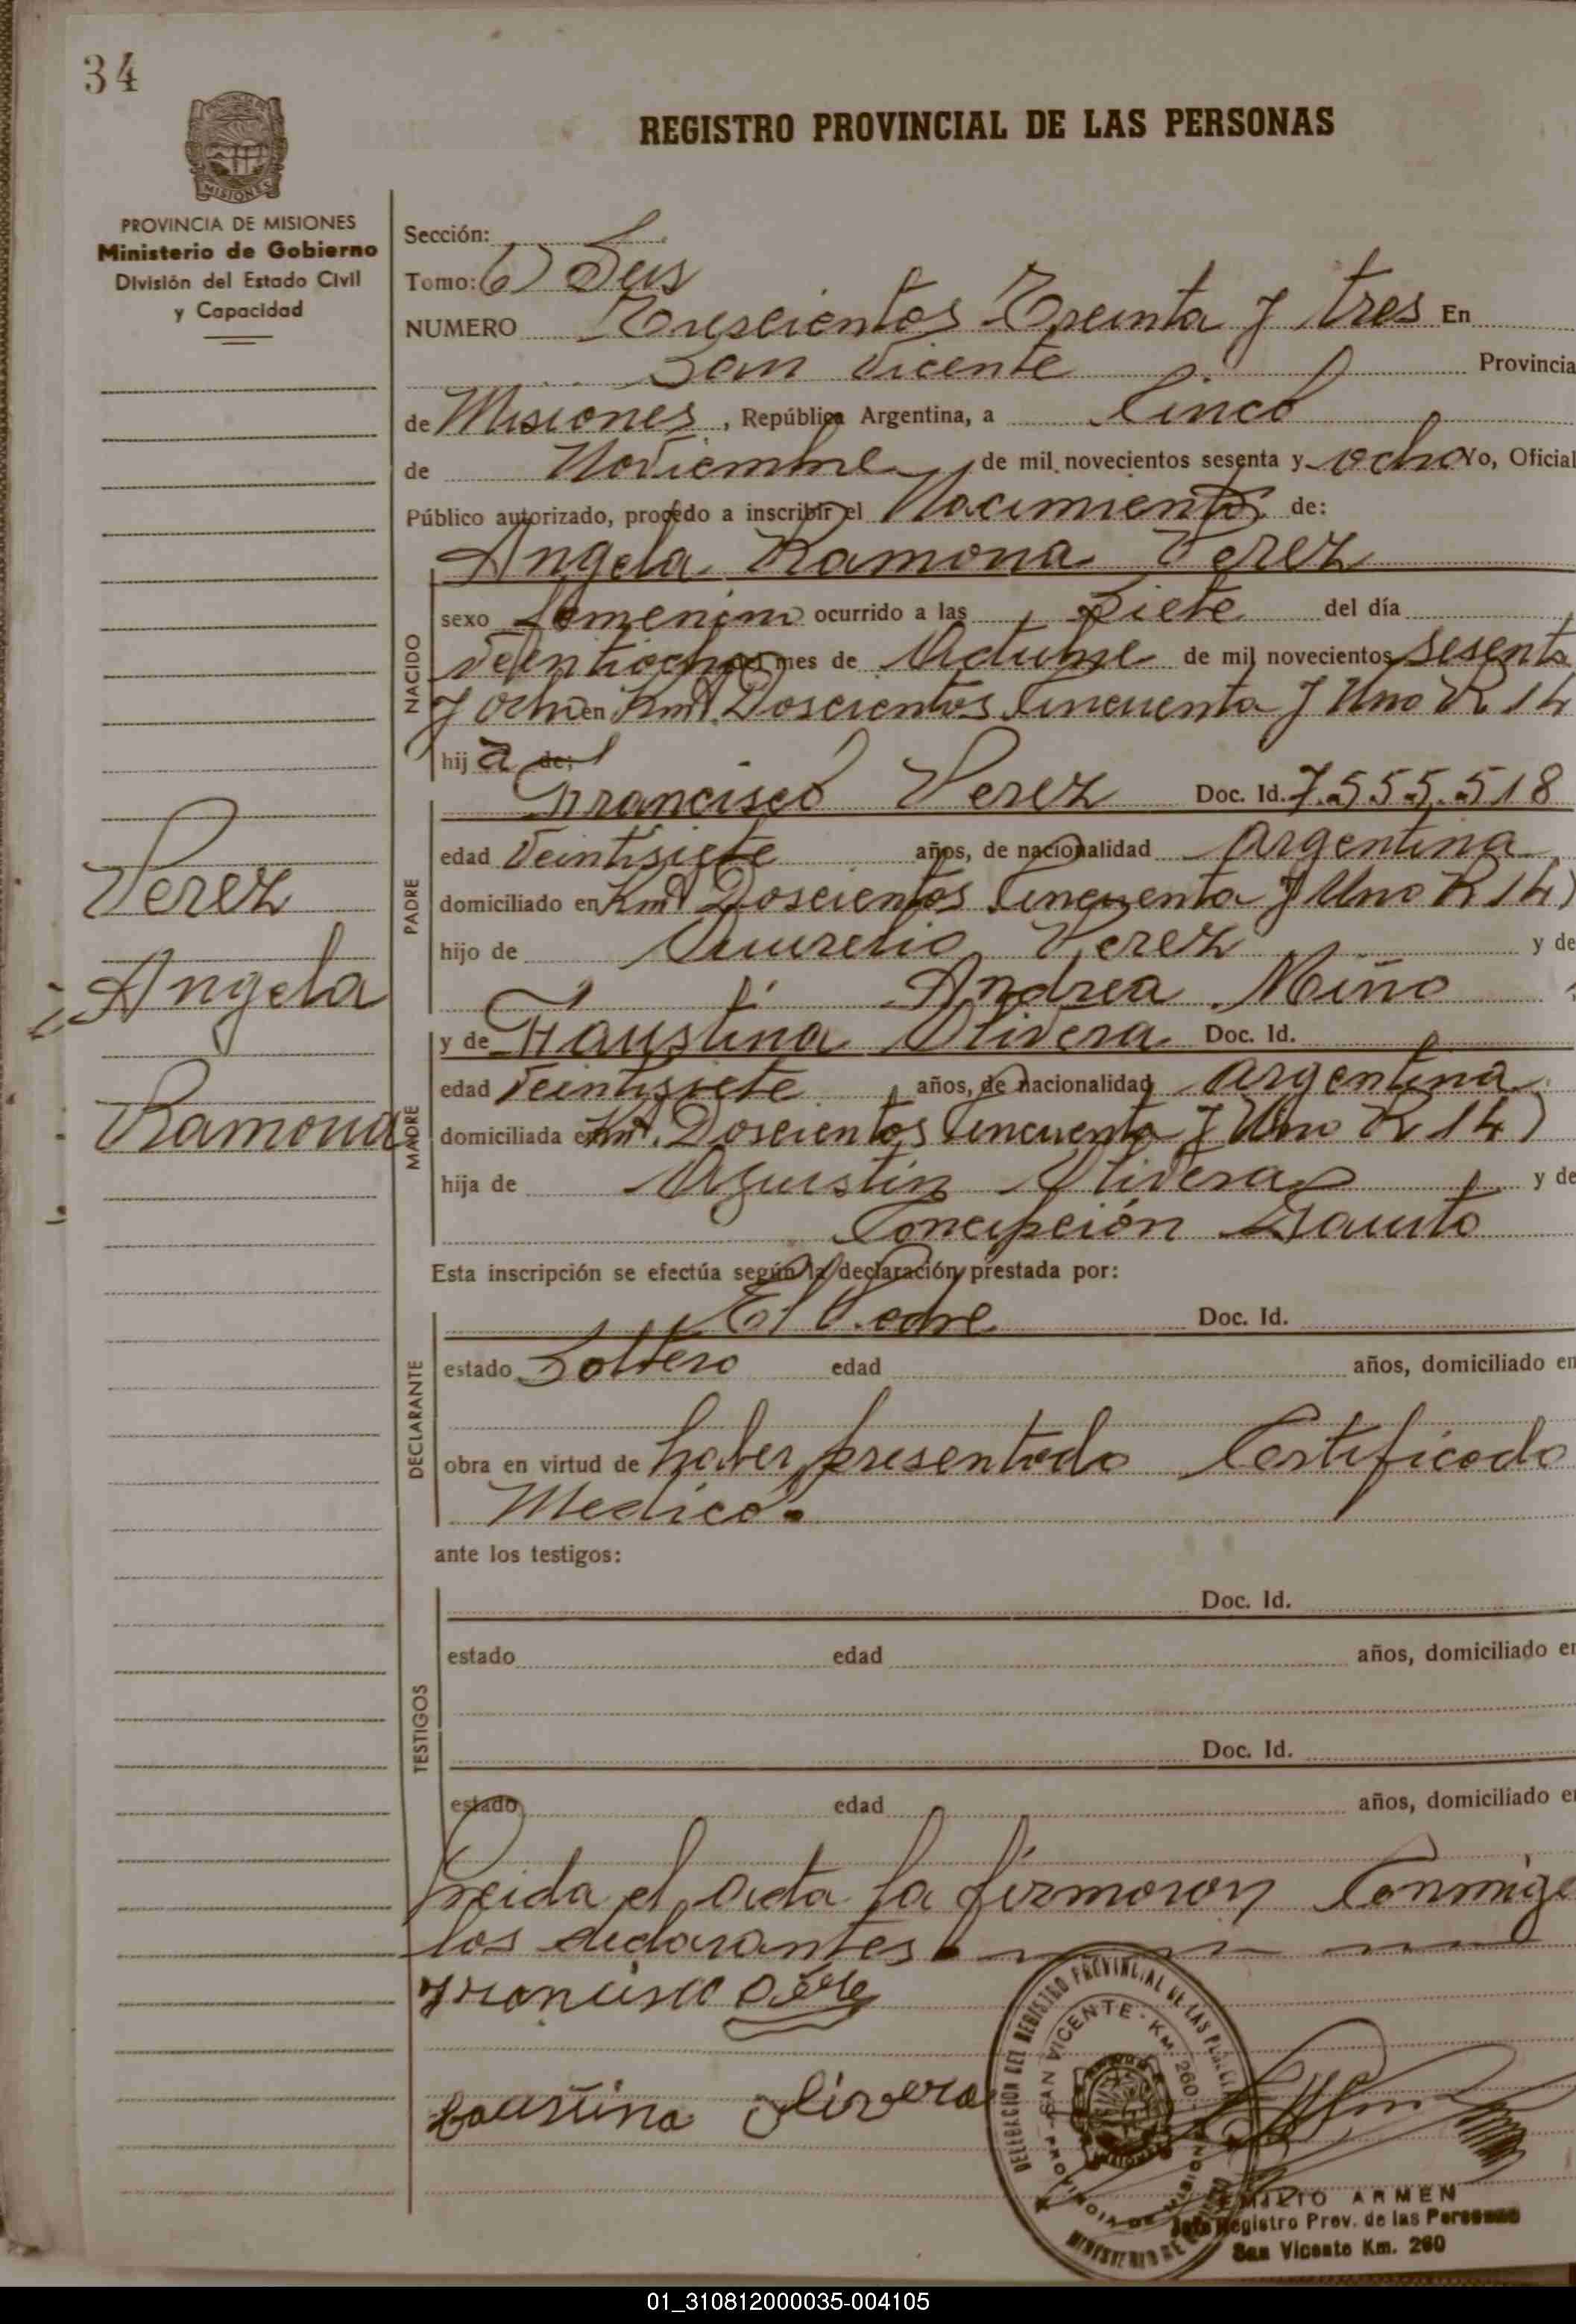 34
REGISTRO PROVINCIAL DE LAS PERSONAS
MISIONES
PROVINCIA DE MISIONES
Ministerio de Gobierno
División del Estado Civil
y Capacidad
Sección:
Tomo: 6) Seis
NUMERO Trescientos Treinta y tres En
San Vicente Provincia
de Misiones, República Argentina, a Cinco
de Noviembre de mil novecientos sesenta y ocho Yo, Oficial
Público autorizado, procedo a inscribir el Nacimiento de:
Angela Ramona Perez
NACIDO
sexo femenino ocurrido a las Siete del día
Veintiocho del mes de Octubre de mil novecientos sesenta
y ocho en Kmt. Doscientos Cincuenta y Uno R 14
hija de:
Francisco Perez Doc. Id. 7.555.518
PADRE
edad Veintisiete años, de nacionalidad Argentina
domiciliado en Kmt Doscientos Cincuenta y Uno R 14)
hijo de Aurelio Perez y de
Andrea Miño
y de Faustina Olivera Doc. Id.
MADRE
edad Veintisiete años, de nacionalidad Argentina
domiciliada en Kmt. Doscientos Cincuenta y Uno R 14)
hija de Agustin Olivera y de
Concepción Gauto
Perez
Angela
Ramona
Esta inscripción se efectúa según la declaración prestada por:
El Padre Doc. Id.
DECLARANTE
estado Soltero edad años, domiciliado en
obra en virtud de haber presentado Certificado
Medico.
ante los testigos:
TESTIGOS
Doc. Id.
estado edad años, domiciliado en
Doc. Id.
estado edad años, domiciliado en
Leida el acta la firmaron Conmigo
los declarantes.
Francisco Pere
Faustina Olivera
DELEGACION DEL REGISTRO PROVINCIAL DE LAS
SAN VICENTE - KM 260
PROVINCIA DE MISIONES
MINISTERIO DE
EMILIO ARMEN
Jefe Registro Prov. de las Personas
San Vicente Km. 260
01_310812000035-004105